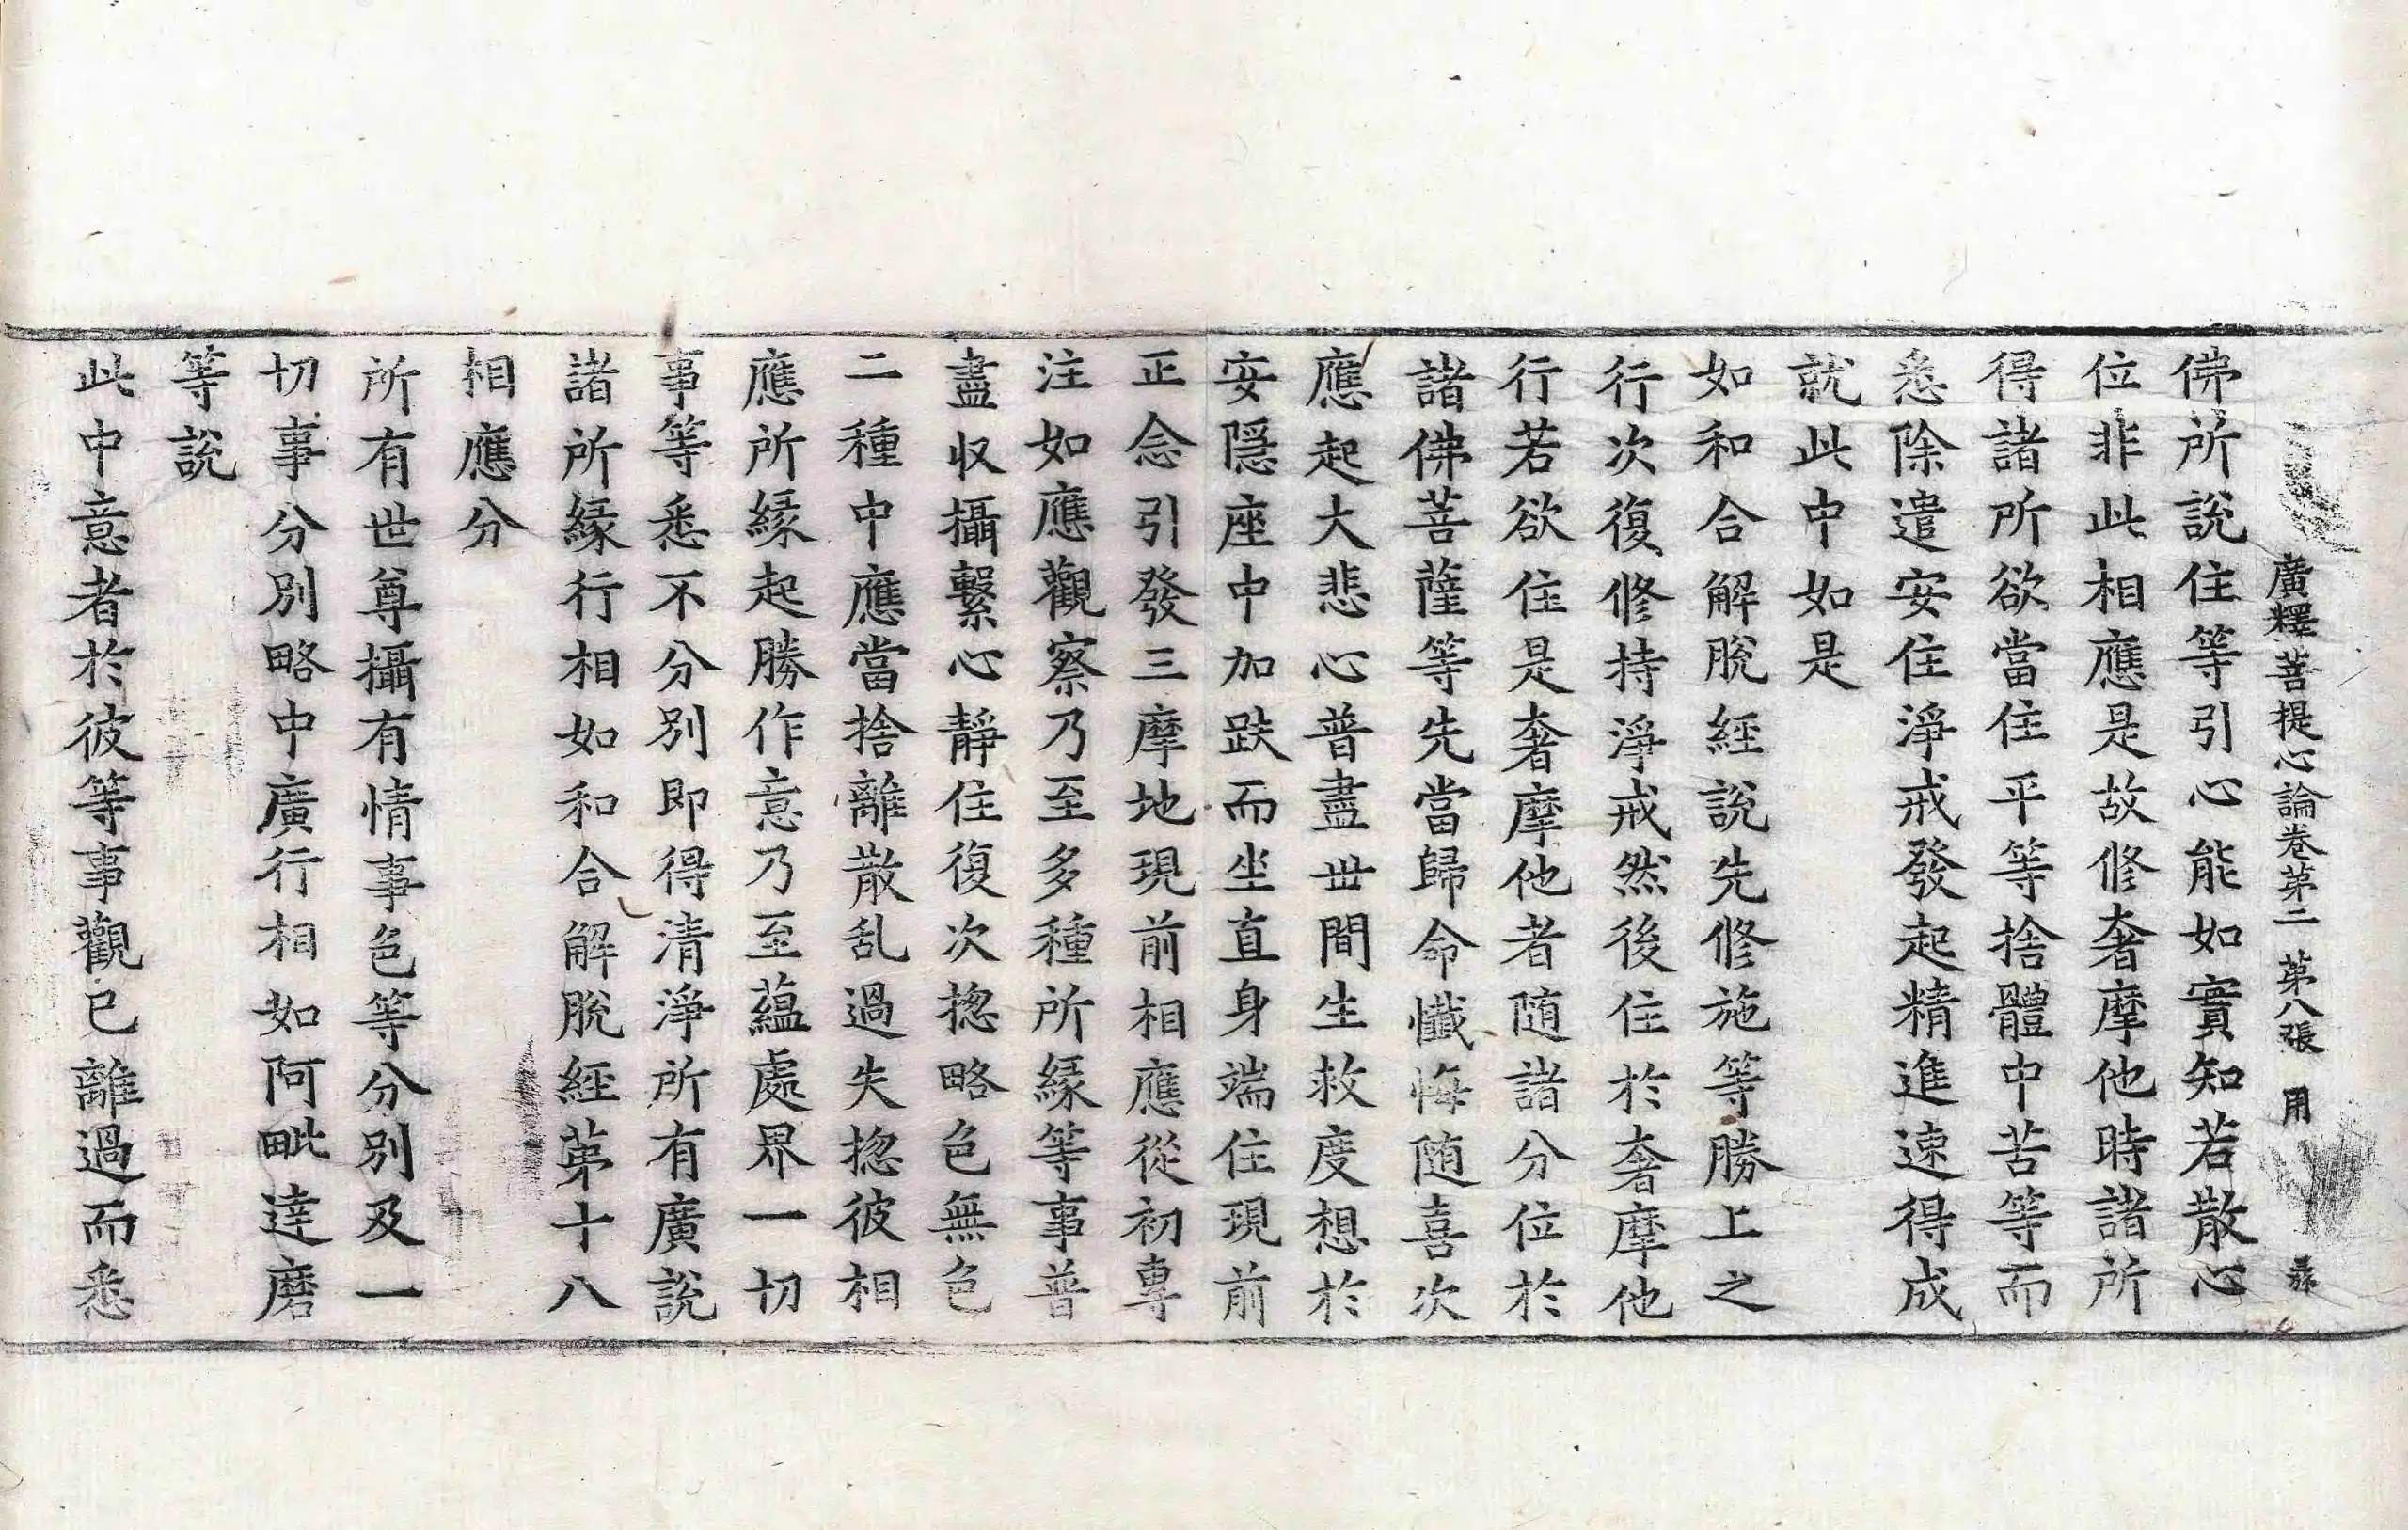 廣釋菩提心論卷第二　第八張　用
佛所說住等引心能如實知若散心
位非此相應是故修奢摩他時諸所
得諸所欲當住平等捨體中苦等而
悉除遣安住淨戒發起精進速得成
就此中如是
如和合解脫經說先修施等勝上之
行次復修持淨戒然後住於奢摩他
行若欲住是奢摩他者随諸分位於
諸佛菩薩等先當歸命懺悔随喜次
應起大悲心普盡世間生救度想於
安隱座中加趺而坐直身端住現前
正念引發三摩地現前相應從初專
注如應觀察乃至多種所緣等事普
盡収攝繫心靜住復次揔略色無色
二種中應當捨離散乱過失揔彼相
應所緣起勝作意乃至蘊處界一切
事等悉不分別即得清淨所有廣說
諸所緣行相如和合解脫經第十八
相應分
所有世尊攝有情事色等分別及一
切事分別略中廣行相如阿毗達磨
等說
此中意者於彼等事觀已離過而悉